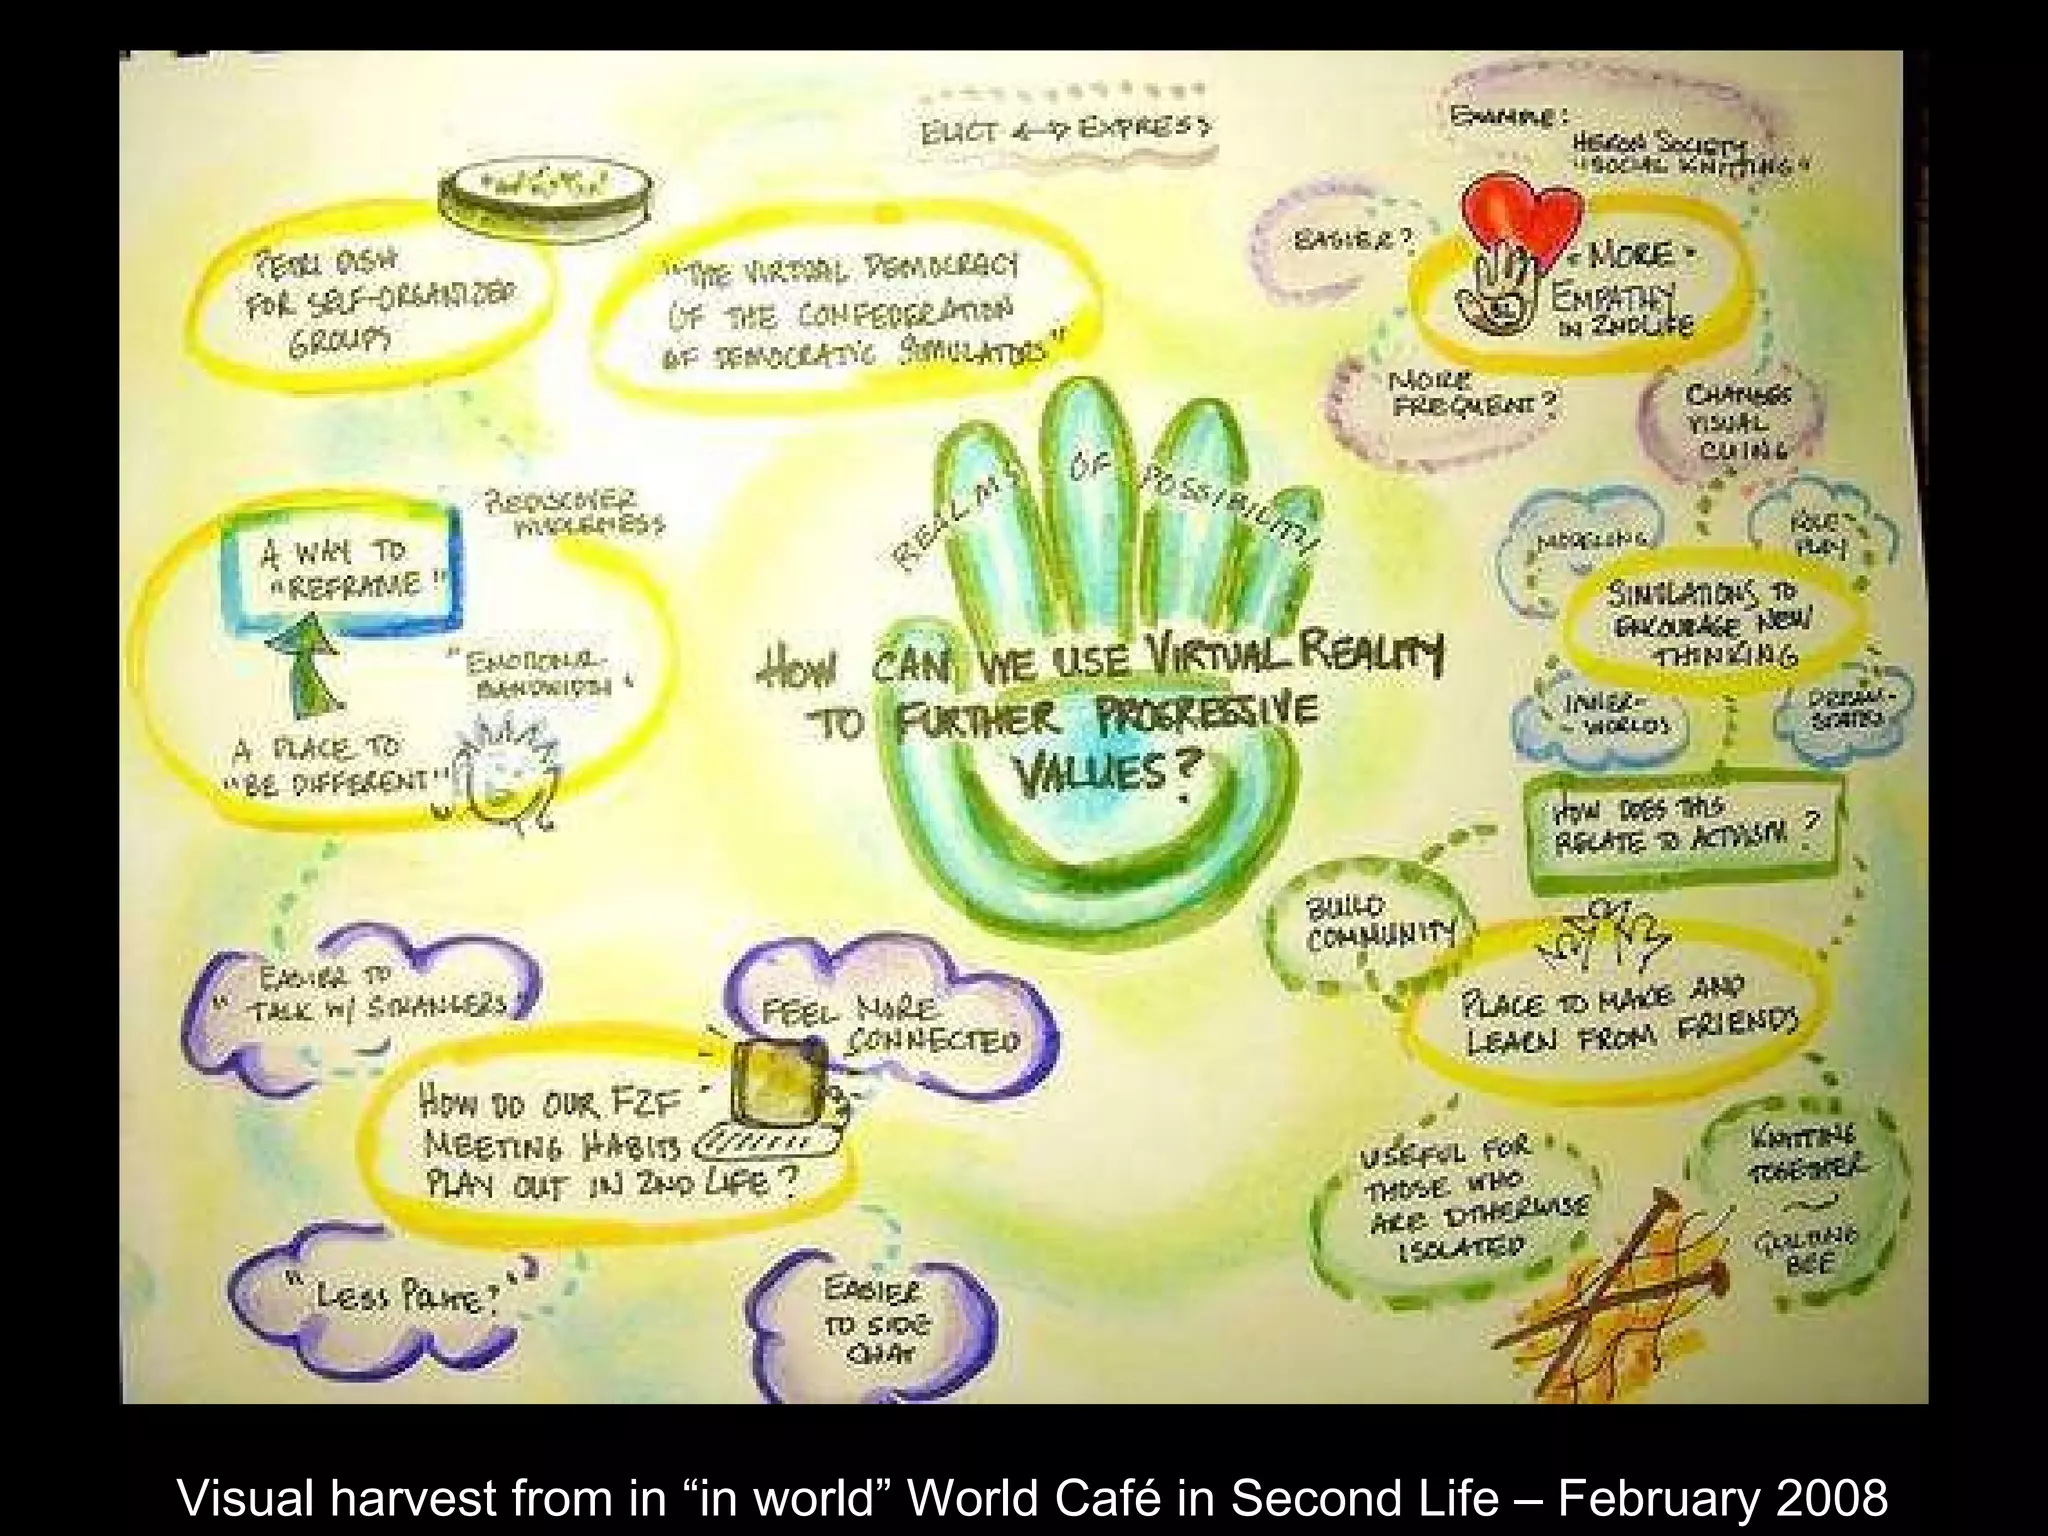 ELICT ↔ EXPRESS
EXAMPLE:
HERON SOCIETY
"SOCIAL KNITTING"
PETRI DISH
FOR SELF-ORGANIZED
GROUPS
"THE VIRTUAL DEMOCRACY
OF THE CONFEDERATION
OF DEMOCRATIC SIMULATORS"
EASIER?
• MORE •
EMPATHY
IN 2ND LIFE
MORE
FREQUENT?
CHANGES
VISUAL
CUING
REALMS OF POSSIBILITY
HOW CAN WE USE VIRTUAL REALITY
TO FURTHER PROGRESSIVE
VALUES?
REDISCOVER
WHOLENESS
A WAY TO
"REFRAME"
"EMOTIONAL
BANDWIDTH"
A PLACE TO
"BE DIFFERENT"
MODELING
ROLE
PLAY
SIMULATIONS TO
ENCOURAGE NEW
THINKING
INNER-
-WORLDS
DREAM-
STATES
HOW DOES THIS
RELATE TO ACTIVISM?
BUILD
COMMUNITY
PLACE TO MAKE AND
LEARN FROM FRIENDS
USEFUL FOR
THOSE WHO
ARE OTHERWISE
ISOLATED
KNITTING
TOGETHER
QUILTING
BEE
EASIER TO
"TALK W/ STRANGERS"
FEEL MORE
CONNECTED
HOW DO OUR F2F
MEETING HABITS
PLAY OUT IN 2ND LIFE?
"LESS POLITE?"
EASIER
TO SIDE
CHAT
Visual harvest from in “in world” World Café in Second Life – February 2008